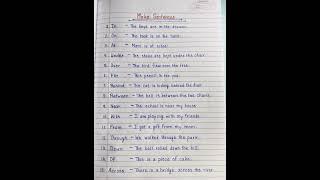 Make Sentences
1. In - The keys are in the drawer.
2. On - The book is on the table.
3. At - Meet at school.
4. Under - The shoes are kept under the chair.
5. Over - The bird flew over the tree.
6. For - This pencil is for you.
7. Behind - The cat is hiding behind the door.
8. Between - The ball is between the two chairs.
9. Near - The school is near my house.
10. With - I am playing with my friends.
11. From - I got a gift from my mom.
12. Through - We walked through the park.
13. Down - The ball rolled down the hill.
14. Of - This is a piece of cake.
15. Across - There is a bridge across the river.